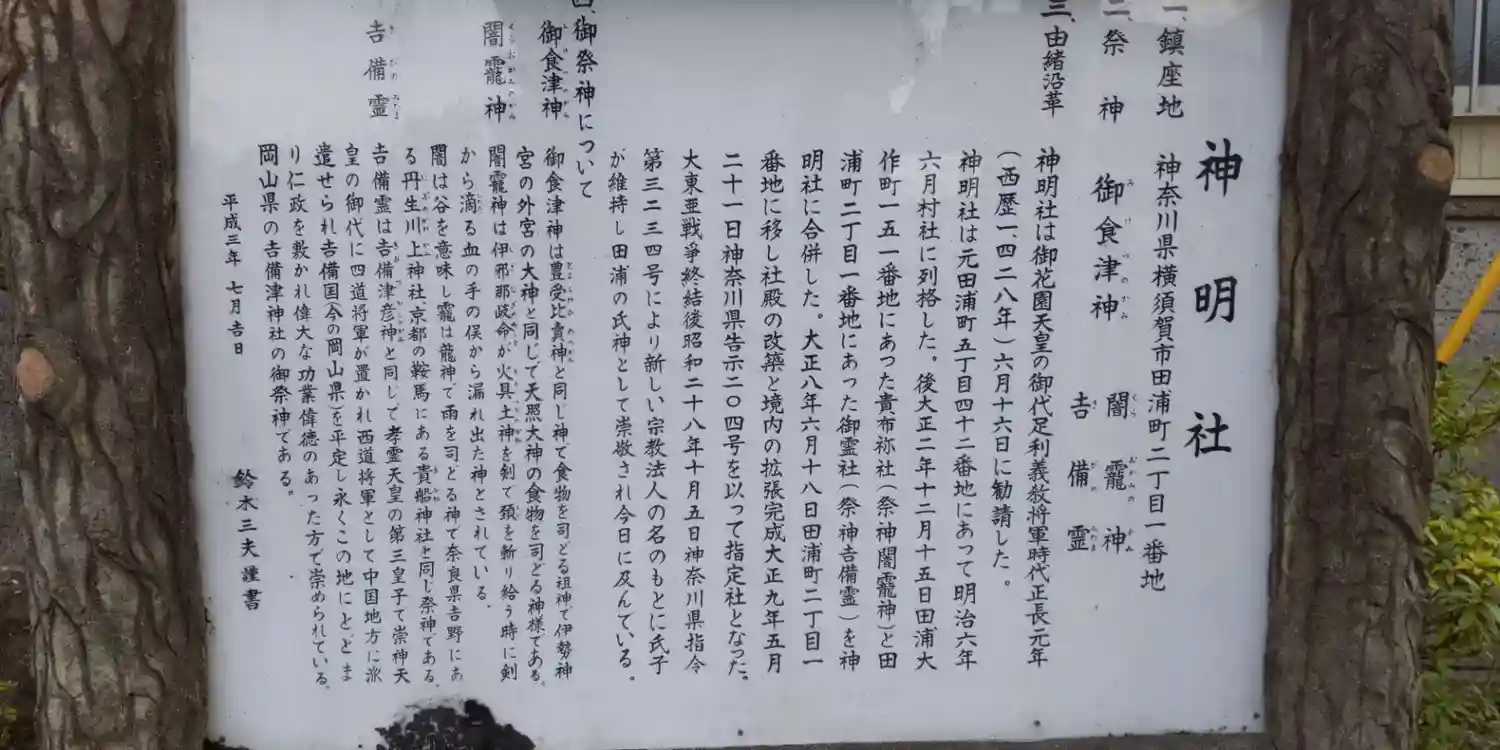 神明社
一、鎮座地 神奈川県横須賀市田浦町二丁目一番地
二、祭神 御食津神 闇龗神
吉備霊
三、由緒沿革
神明社は御花園天皇の御代足利義教将軍時代正長元年
(西歴一、四二八年)六月十六日に勧請した。
神明社は元田浦町五丁目四十二番地にあって明治六年
六月村社に列格した。後大正二年十二月十五日田浦大
作町一五一番地にあった貴布祢社(祭神闇龗神)と田
浦町二丁目一番地にあった御霊社(祭神吉備霊)を神
明社に合併した。大正八年六月十八日田浦町二丁目一
番地に移し社殿の改築と境内の拡張完成大正九年五月
二十一日神奈川県告示二〇四号を以って指定社となった。
大東亜戦争終結後昭和二十八年十月五日神奈川県指令
第三二三四号により新しい宗教法人の名のもとに氏子
が維持し田浦の氏神として崇敬され今日に及んでいる。
四、御祭神について
御食津神 御食津神は豊受比賣神と同じ神で食物を司どる祖神で伊勢神
宮の外宮の大神と同じで天照大神の食物を司どる神様である。
闇龗神 闇龗神は伊邪那岐命が火具土神を剣で頚を斬り給う時に剣
から滴る血の手の俣から漏れ出た神とされている。
闇は谷を意味し龗は龍神で雨を司どる神で奈良県吉野にあ
る丹生川上神社、京都の鞍馬にある貴船神社と同じ祭神である。
吉備霊 吉備霊は吉備津彦神と同じで孝霊天皇の第三皇子で崇神天
皇の御代に四道将軍が置かれ西道将軍として中国地方に派
遣せられ吉備国(今の岡山県)を平定し永くこの地にとどま
り仁政を敷かれ偉大な功業偉徳のあった方で崇められている。
岡山県の吉備津神社の御祭神である。
平成三年七月吉日
鈴木三夫謹書